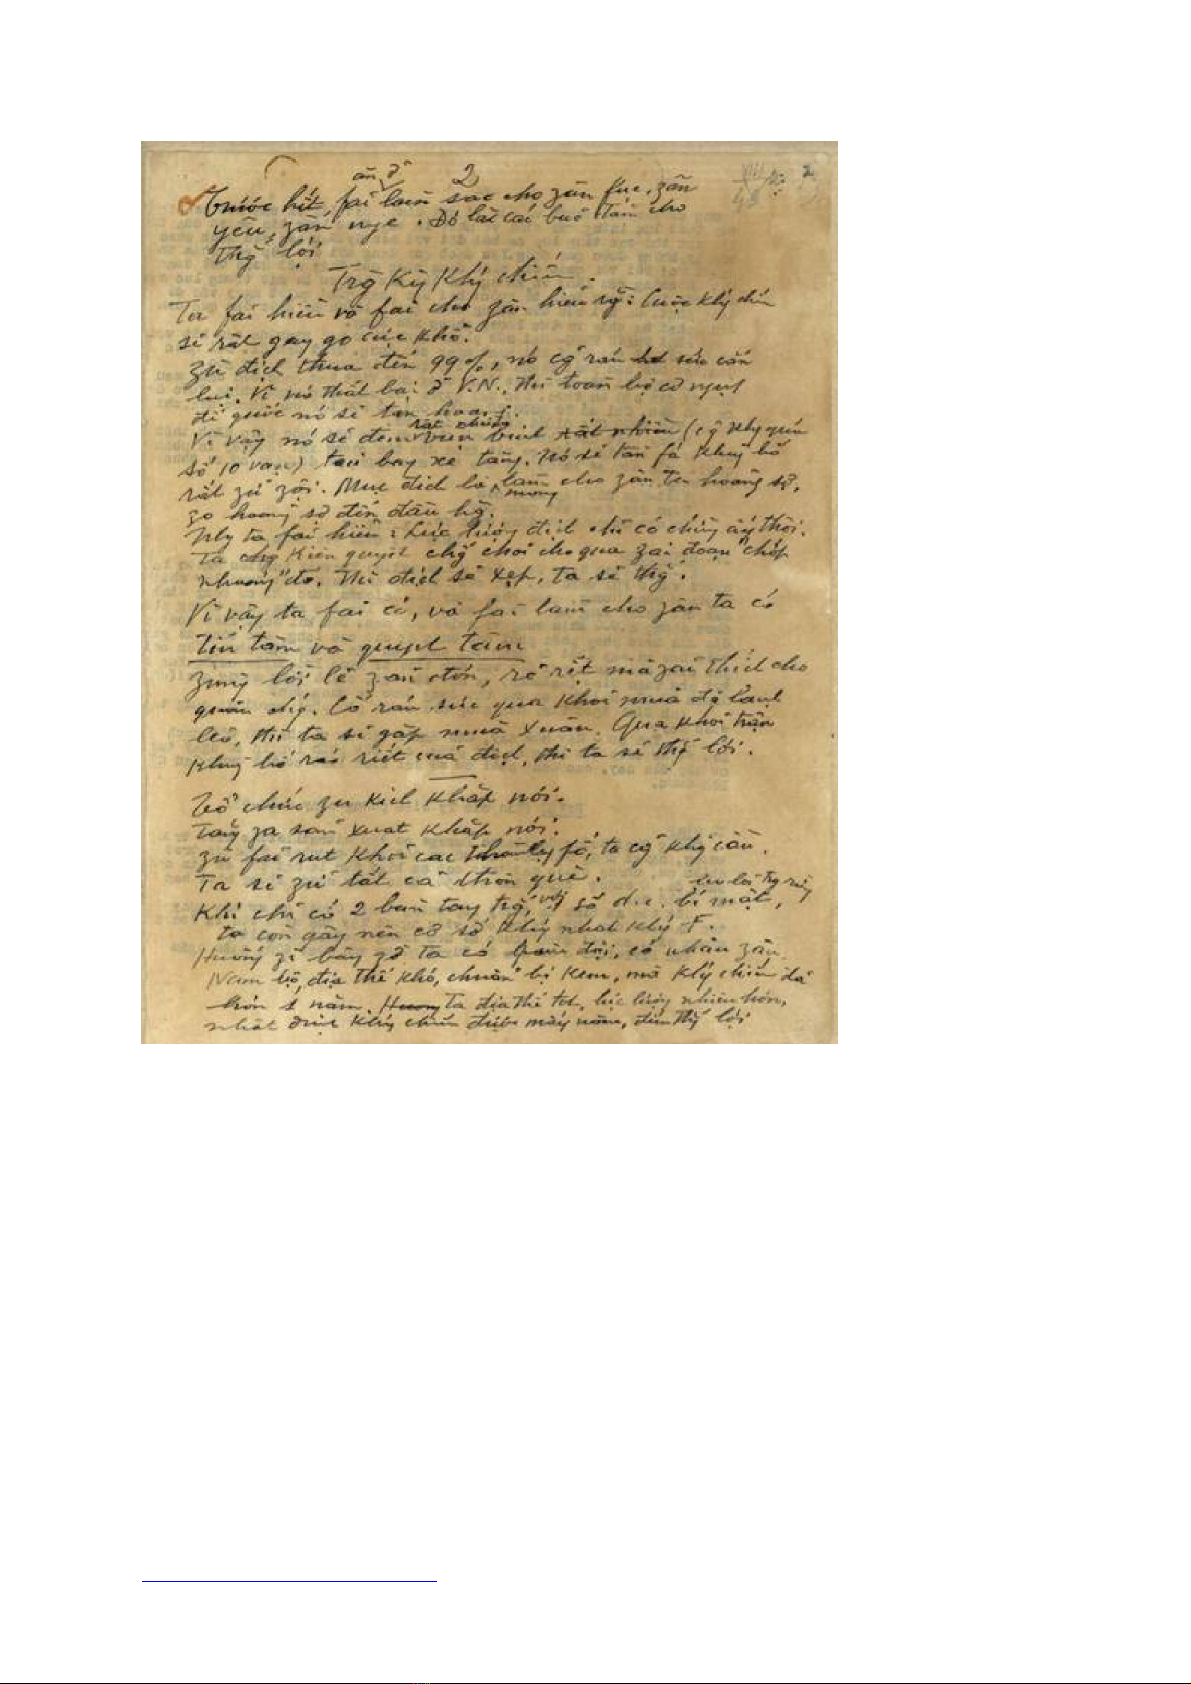 2
ăn ở
Trước hết, fải làm sao cho zân fục, zân
yêu, zân nge. Đó là cái buổ tâm cho
thg̃ lợi
Trg̃ Kỳ Khǵ chiến.
Ta fải hiểu và fải cho zân hiểu rg̃: Cuộc khǵ chiến
sẽ rất gay go cực khổ.
Zù địch thua đến 99%, nó cg̃ rán hết sức cắn
lại. Vì nó thất bại ở V.N., thì toàn bộ cơ nghiệp
đế quốc nó sẽ tan hoang.
rất nhiều
Vì vậy nó sẽ đem viện binh rất nhiều (cg̃ khg quá
số 10 vạn) tàu bay xe tăng. Nó sẽ tàn fá khủng bố
rất zữ zội. Mục đích là làm cho zân ta hoảng sợ,
mong
zo hoảng sợ đến đầu hg̀.
Nhg ta fải hiểu: Lực lượng địch chỉ có chừng ấy thôi.
Ta kiên quyết chg̃ chọi cho qua zai đoạn "chớp
nhoáng" đó. Thì địch sẽ xẹp, ta sẽ thg̃.
Vì vậy ta fải có, và fải làm cho zân ta có
tín tâm và quyết tâm
Zùng lời lẽ zản đơn, rõ rệt mà zải thích cho
quần chǵ. Cố rán sức qua khỏi mùa đông lạnh
lẽo, thì ta sẽ gặp mùa Xuân. Qua khỏi trận
khủng bố ráo riết của địch, thì ta sẽ thg̃ lợi.
Tổ chức zu kích khắp nơi.
Tăng za sản xuất khắp nơi.
Zù fải rút khỏi các thành fố, ta cg̃ khg cần.
Ta sẽ zữ tất cả thôn quê.
Khi chỉ có 2 bàn tay trg̃, với số đ.c. bí mật,
ta còn gây nên cơ sở khǵ Nhật khǵ F.
Huống zì bây zờ ta có quân đội, có nhân zân.
Nam bộ, địa thế khó, chuẩn bị kém, mà khǵ chiến đã
hơn 1 năm. Ta địa thế tốt, lực lượng nhiều hơn,
nhất định khǵ chiến được mấy năm, đến thg̃ lợi